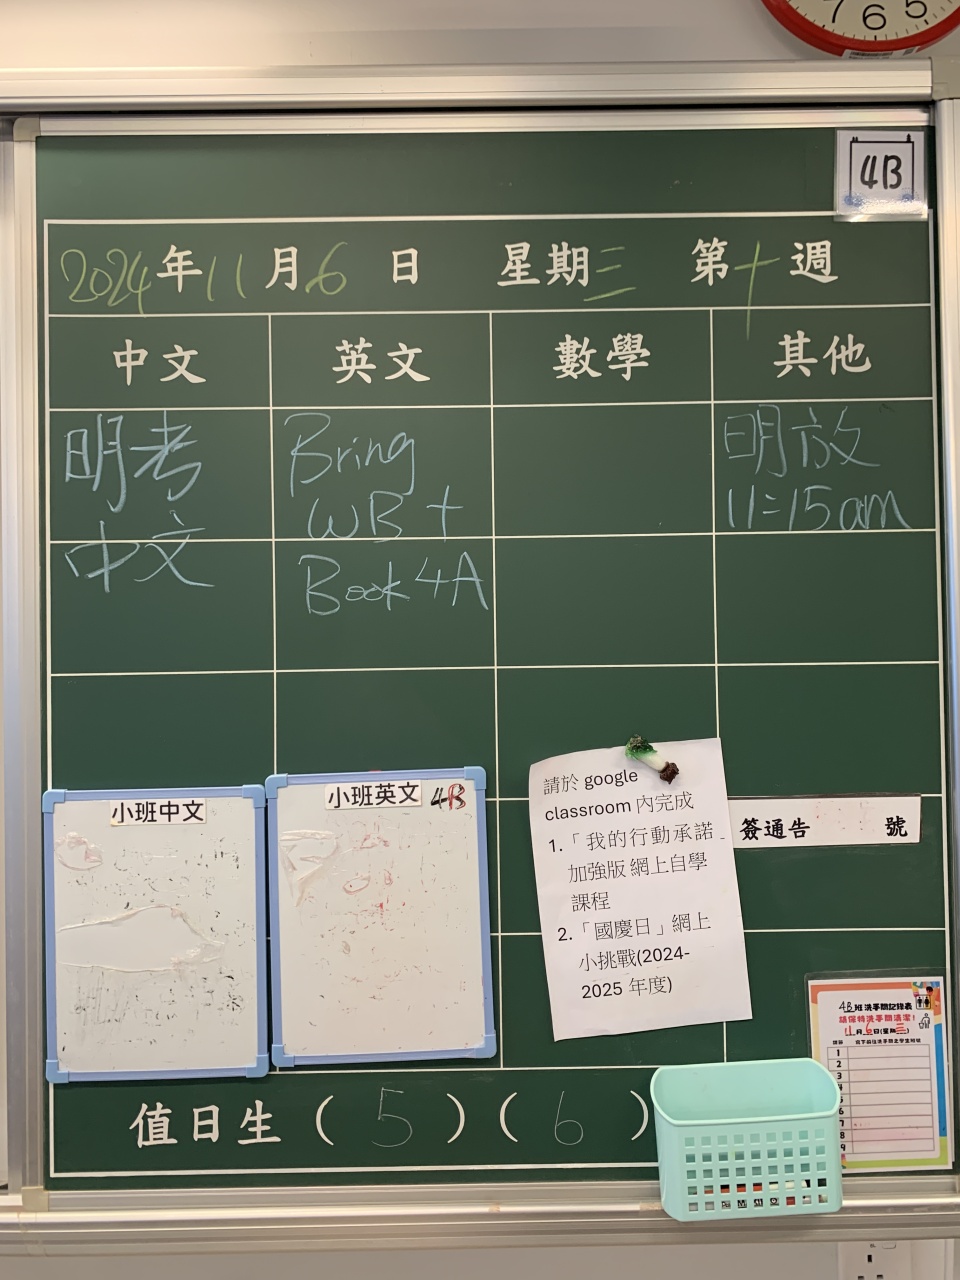 7 6 5
4B
2024年11月6日 星期三 第十週
中文 英文 數學 其他
明考
中文
Bring
WB +
Book 4A
明放
11:15am
小班中文
小班英文 4B
請於 google
classroom 內完成
1.「我的行動承諾
加強版 網上自學
課程
2.「國慶日」網上
小挑戰(2024-
2025 年度)
簽通告 號
4B班洗手間記錄表
請保持洗手間清潔!
11月6日(星期三)
1
2
3
4
5
6
7
8
9
值日生 ( 5 ) ( 6 )